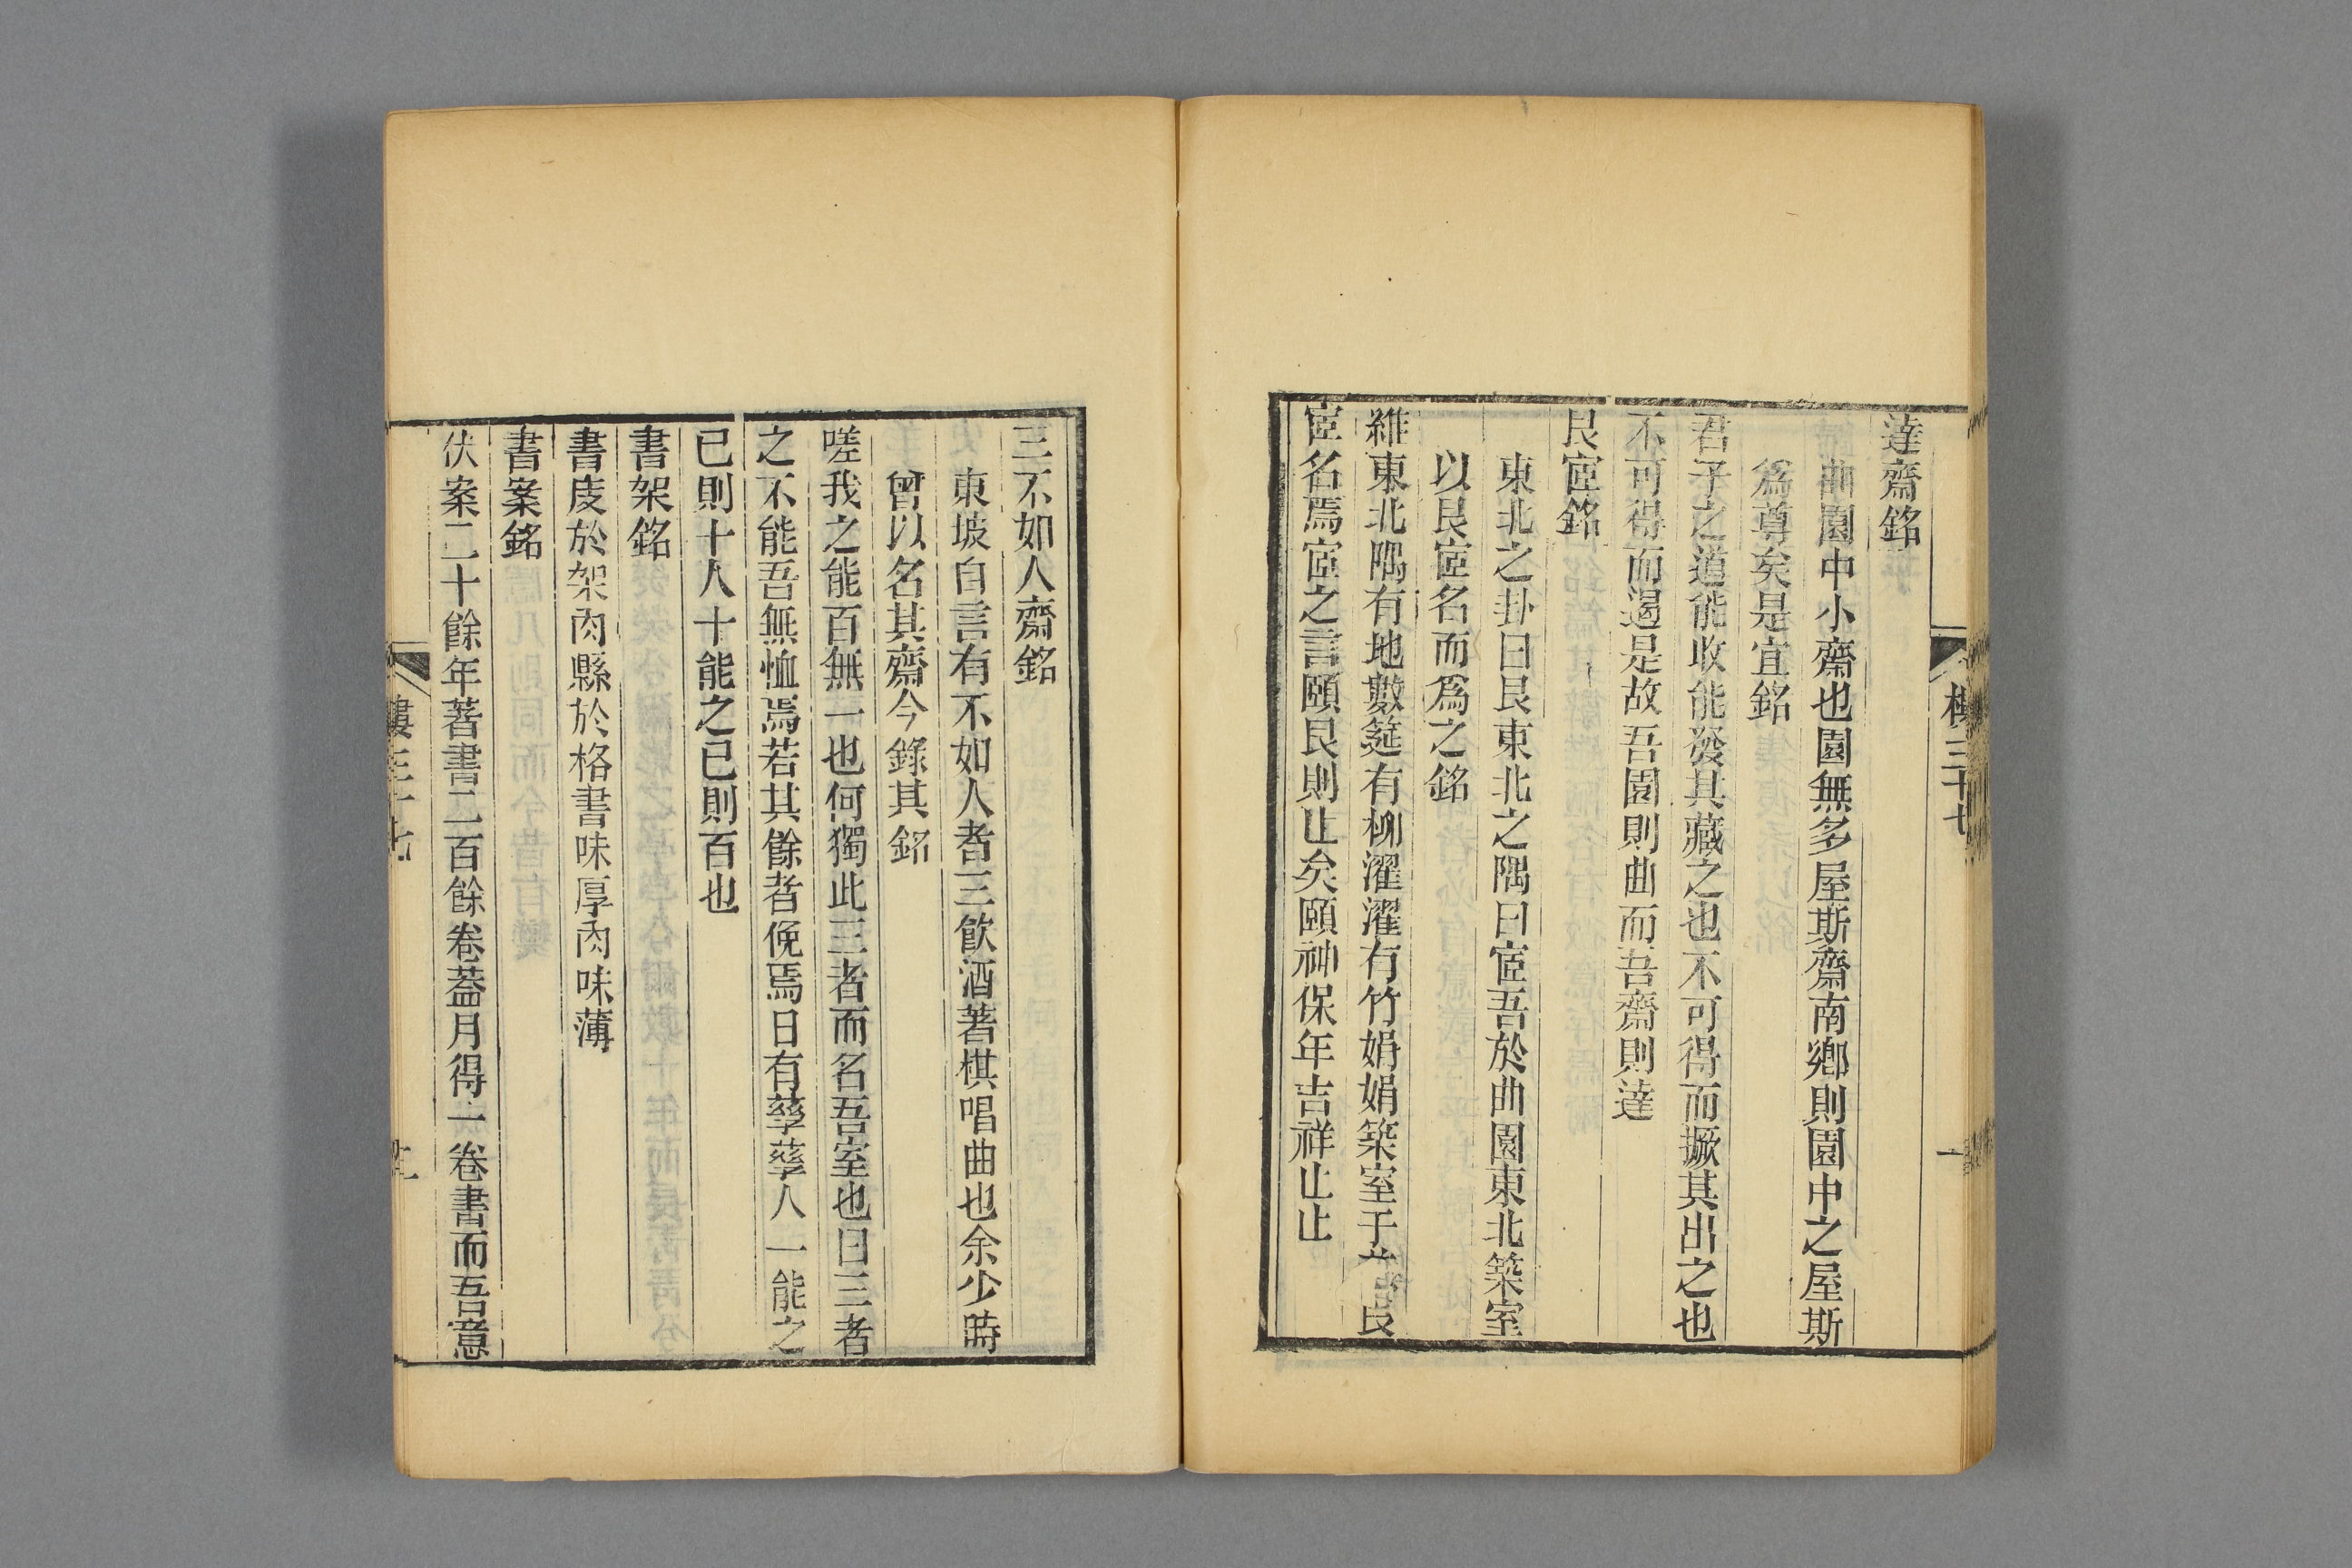 達齋銘
曲園中小齋也園無多屋斯齋南鄉則園中之屋斯
爲尊矣是宜銘
君子之道能收能發其藏之也不可得而撅其出之也
不可得而遏是故吾園則曲而吾齋則達
艮宧銘
東北之卦曰艮東北之隅曰宧吾於曲園東北築室
以艮宧名而爲之銘
維東北隅有地數筵有柳濯濯有竹娟娟築室于艮
宧名焉宧之言頤艮則止矣頤神保年吉祥止止
三十七
三不如人齋銘
東坡自言有不如人者三飲酒著棋唱曲也余少時
曾以名其齋今錄其銘
嗟我之能百無一也何獨此三者而名吾室也曰三者
之不能吾無恤焉若其餘者俛焉日有孳孳人一能之
已則十人十能之已則百也
書架銘
書庋於架肉縣於格書味厚肉味薄
書案銘
伏案二十餘年著書二百餘卷葢月得一卷書而吾意